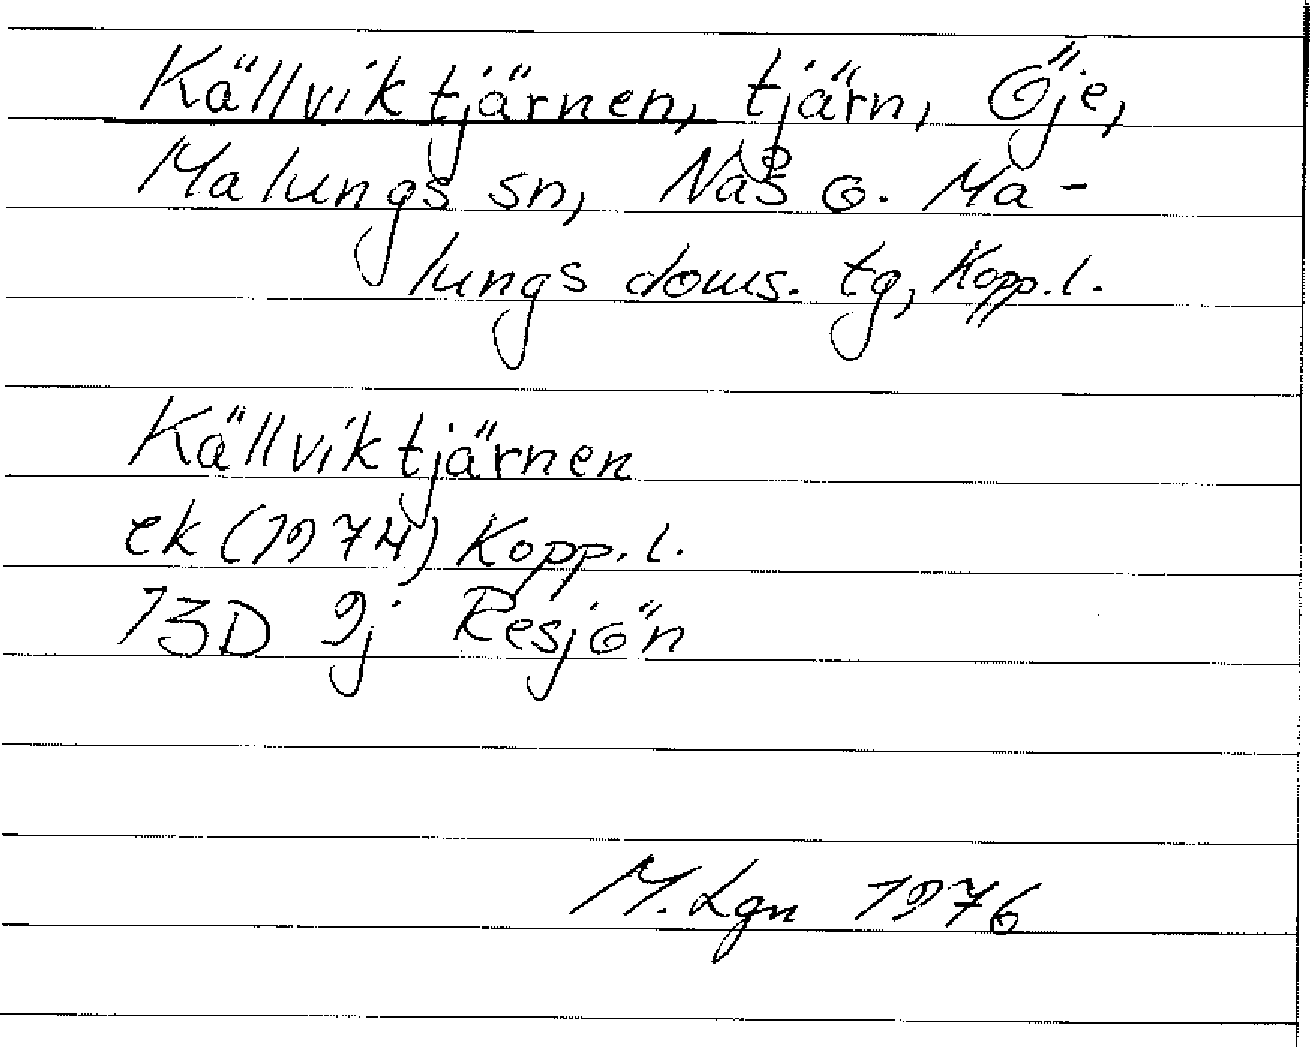 Källviktjärnen, tjärn, Öje,
Malungs sn, Nås o. Ma-
lungs doms. tg, Kopp.l.
Källviktjärnen
ek (1974) Kopp. l.
13D 9j Resjön
M. Lgn 1976